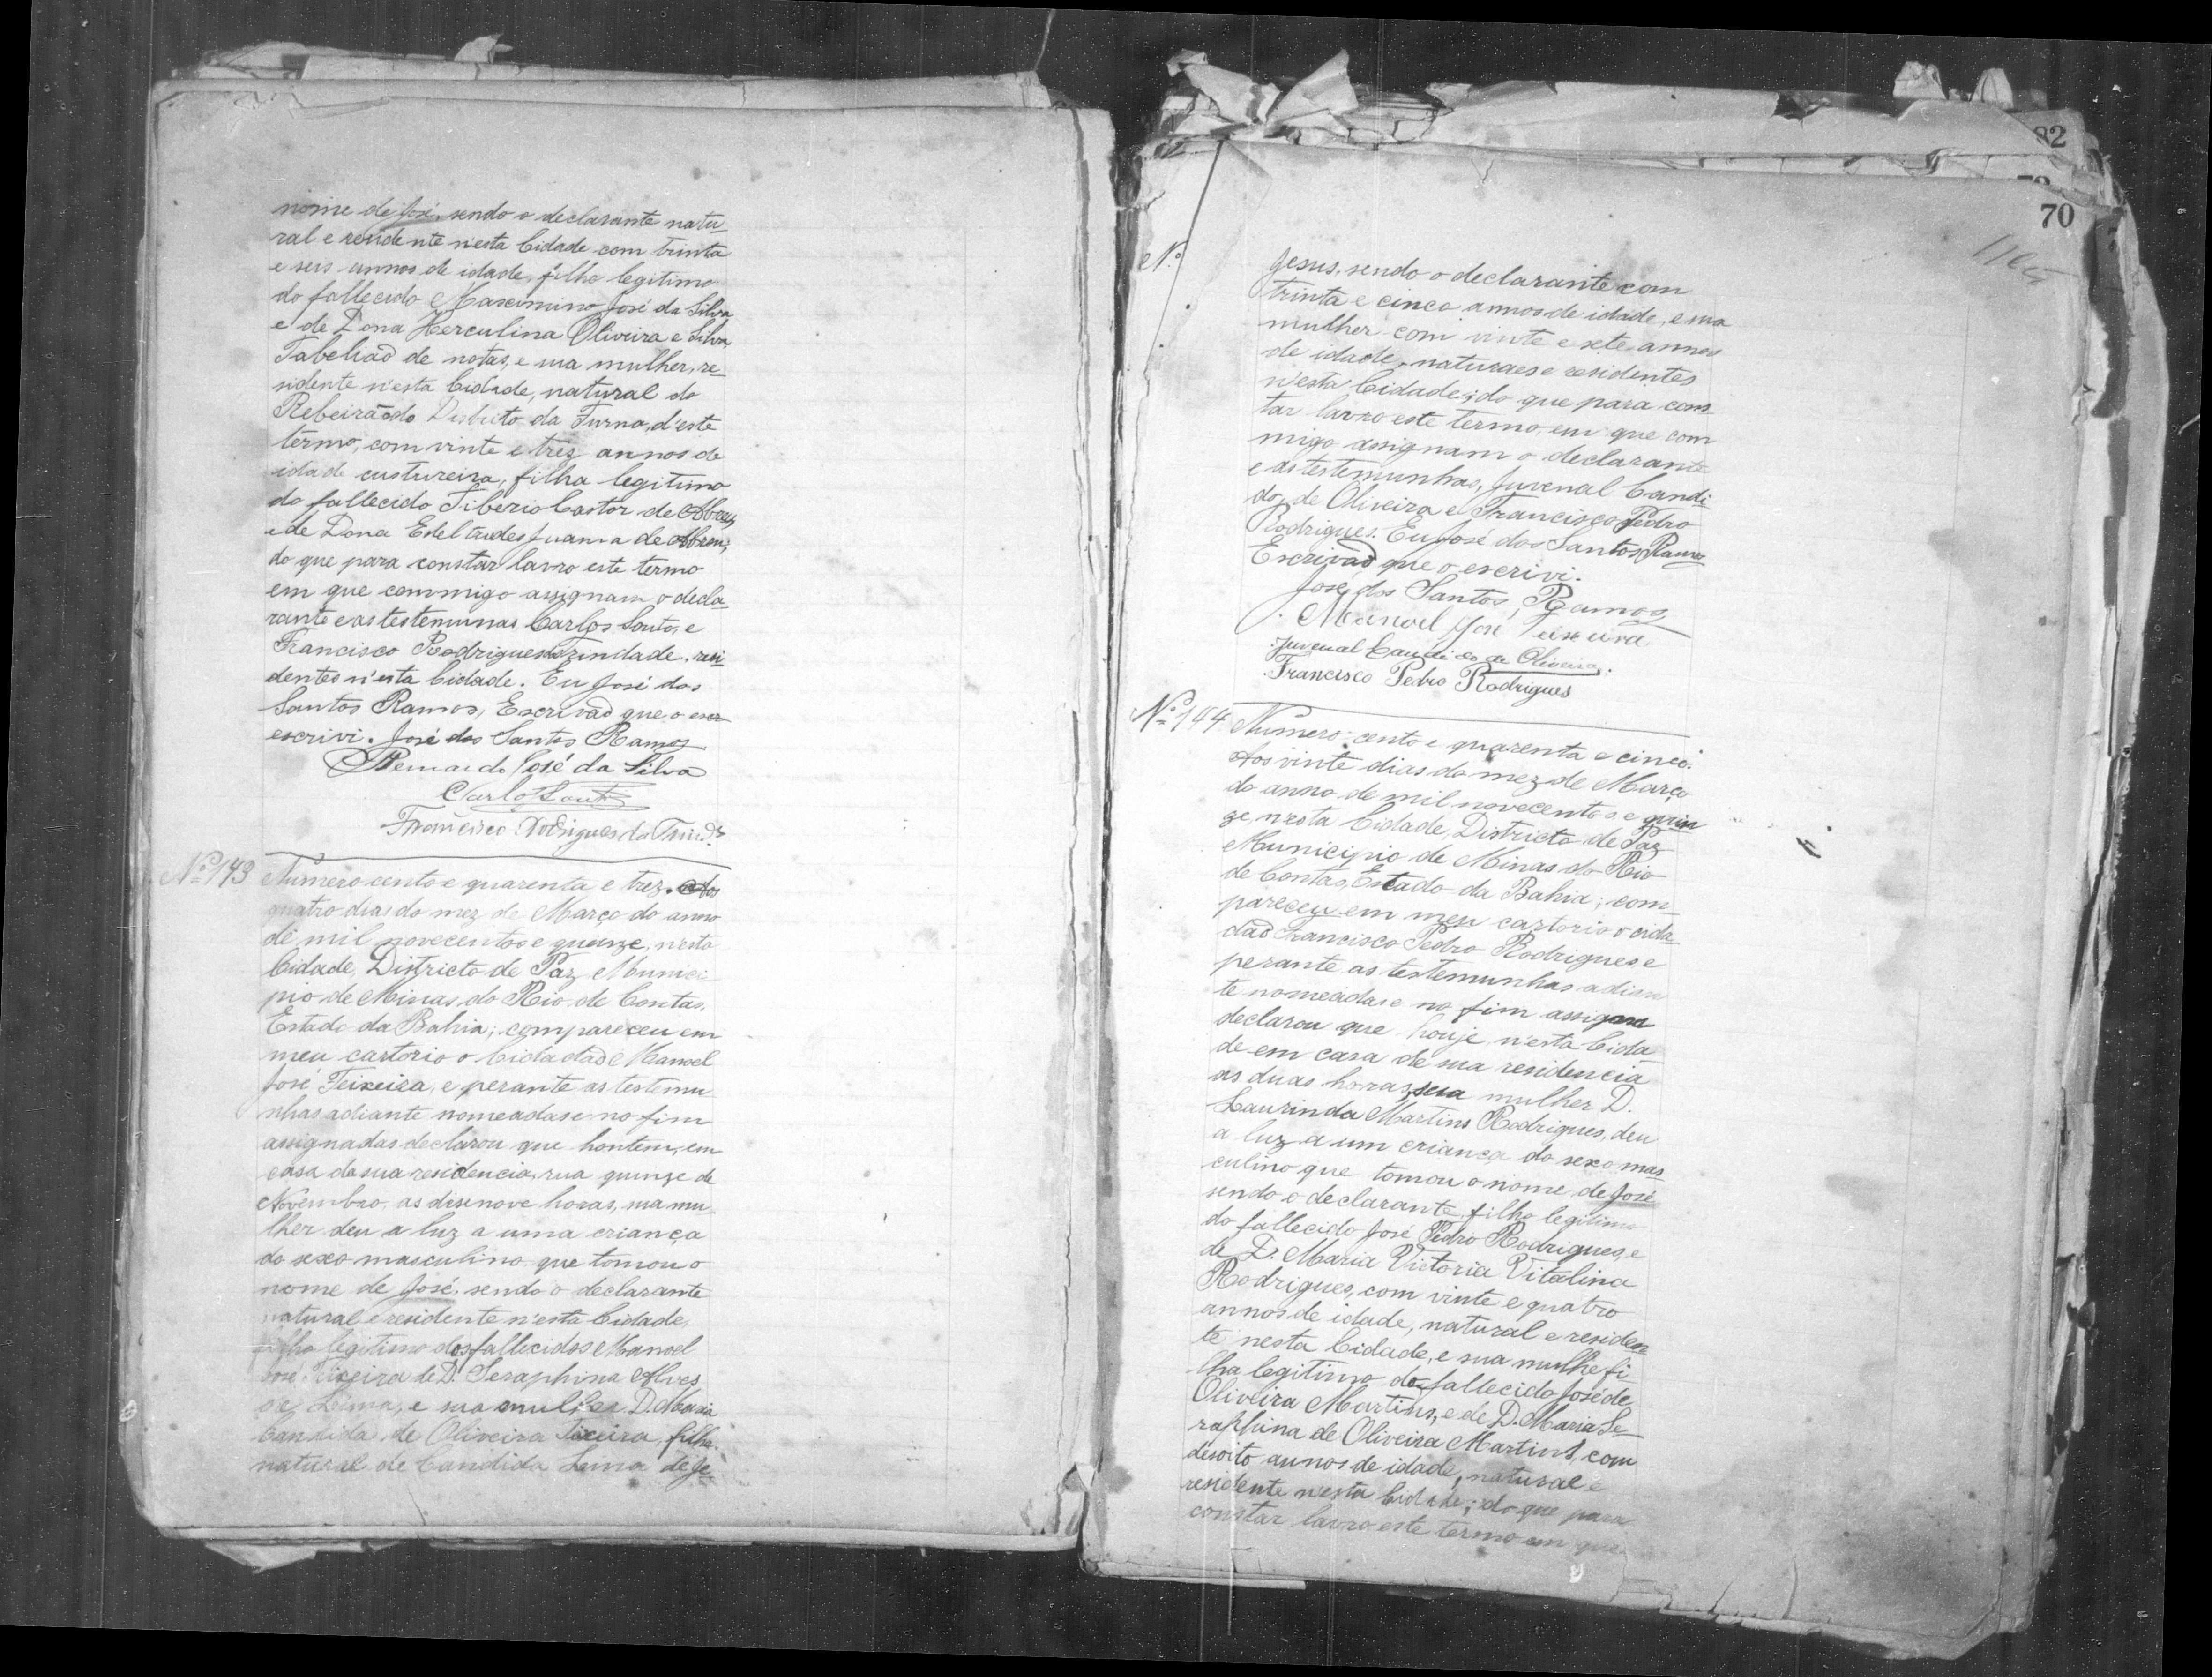 nome de José, sendo o declarante natu-
ral e residente n'esta Cidade com trinta
e seis annos de idade, filho legitimo
do fallecido Maximino José da Silva
e de Dona Herculina Oliveira e Silva,
Tabelião de notas, e sua mulher, re-
sidente n'esta Cidade, natural do
Rebeirão do da Furna, d'este
termo, com vinte e trez annos de
idade custureira, filha legitima
do fallecido Tiberio Castor de Abreu,
e de Dona Edeltrudes Juanna de Abreu;
do que para constar lavro este termo
em que commigo assignam o decla-
rante e as testemunas Carlos Souto, e
Francisco Rodrigues Trindade, resi-
dentes n'esta Cidade. Eu José dos
Santos Ramos, Escrivaõ que o escr
escrivi. José dos Santos Ramos
Bernardo José da Silva
Carlos Souto
Francisco Rodrigues da Trind.e
Nº 143 Numero cento e quarenta e trez. Aos
quatro dias do mez de Março do anno
de mil novecentos e quinze, nesta
Cidade, Districto de Paz Munici-
pio de Minas do Rio de Contas,
Estado da Bahia; compareceu em
meu cartorio o Cidadaõ Manoel
José Teixeira, e perante as testemu-
nhas adiante nomeadas e no fim
assignadas declarou que hontem, em
casa da sua residencia, rua quinze de
Novembro, as disenove horas, sua mu-
lher deu a luz a uma criança
do sexo masculino que tomou o
nome de José, sendo o declarante
natural e residente n'esta Cidade,
filho legitimo dos fallecidos Manoel
José Teixeira e D. Seraphina Alves
de Lima, e sua mulher D. Maria
Candida de Oliveira Teixeira, filha
natural de Candida Lama de Je-
82
70
Nº
Jesus, sendo o declarante com
trinta e cinco annos de idade, e sua
mulher com vinte e sete annos
de idade, naturaes e residentes
n'esta Cidade; do que para cons-
tar lavro este termo em que com
migo assignam o declarante
e as testemunhas, Juvenal Candi-
do de Oliveira e Francisco Pedro
Rodrigues. Eu José dos Santos Ramos
Escrivaõ que o escrivi.
José dos Santos Ramos
Manoel José Teixeira
Juvenal Candido de Oliveira.
Francisco Pedro Rodrigues
Nº 144 Numero cento e quarenta e cinco.
Aos vinte dias do mez de Março
do anno de mil novecentos e quin
ze, nesta Cidade, Districto de Paz
Municipio de Minas do Rio
de Contas, Estado da Bahia; com-
pareceu em meu cartorio o cida-
daõ Francisco Pedro Rodrigues e
perante as testemunhas adian
te nomeadas e no fim assigna
declarou que houje n'esta Cida-
de em casa de sua residencia
as duas horas, sua mulher D.
Laurinda Martins Rodrigues, deu
a luz a um criança do sexo mas
culino que tomou o nome de José
sendo o declarante filho legitimo
do fallecido José Pedro Rodrigues, e
de D. Maria Victoria Vitalina
Rodrigues, com vinte e quatro
annos de idade, natural e residen
te nesta Cidade, e sua mulhe fi-
lha legitima do fallecido José de
Oliveira Martins, e de D. Maria Se-
raphina de Oliveira Martins, com
desoito annos de idade, natural e
residente n'esta Cidade; do que para
constar lavro este termo em que